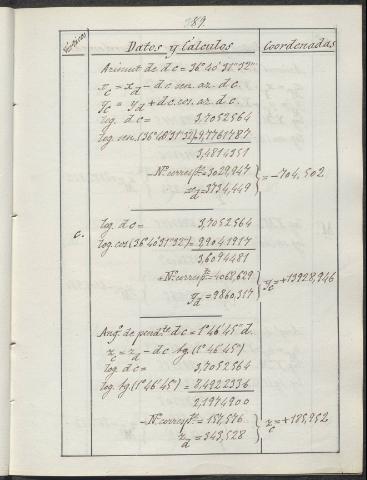 189.
Vértices
Datos y Cálculos
Coordenadas
Azimut de d c = 36° 40' 31" 32'''
x_c = x_d - d c sen. az. d c.
y_c = y_d + d c. cos. az. d c.
log. d c = 3,7052564
log. sen. (36° 40' 31" 32) = 9,7761787
3,4814351
- N.º corresp.te = 3029,947
x_d = 3734,449
= -704,502
c.
log. d c = 3,7052564
log. cos (36° 40' 31" 32''') = 9,9041917
3,6094481
- N.º corresp.te = 4068,629
y_d = 9860,317
y_c = +13928,946
Ang.º de pend.te d c = 1° 46' 45" d.
z_c = z_d - d c tg. (1° 46' 45")
log. d c = 3,7052564
log. tg. (1° 46' 45") = 8,4922336
2,1974900
- N.º corresp.te = 157,576
z_d = 343,528
z_c = +185,952